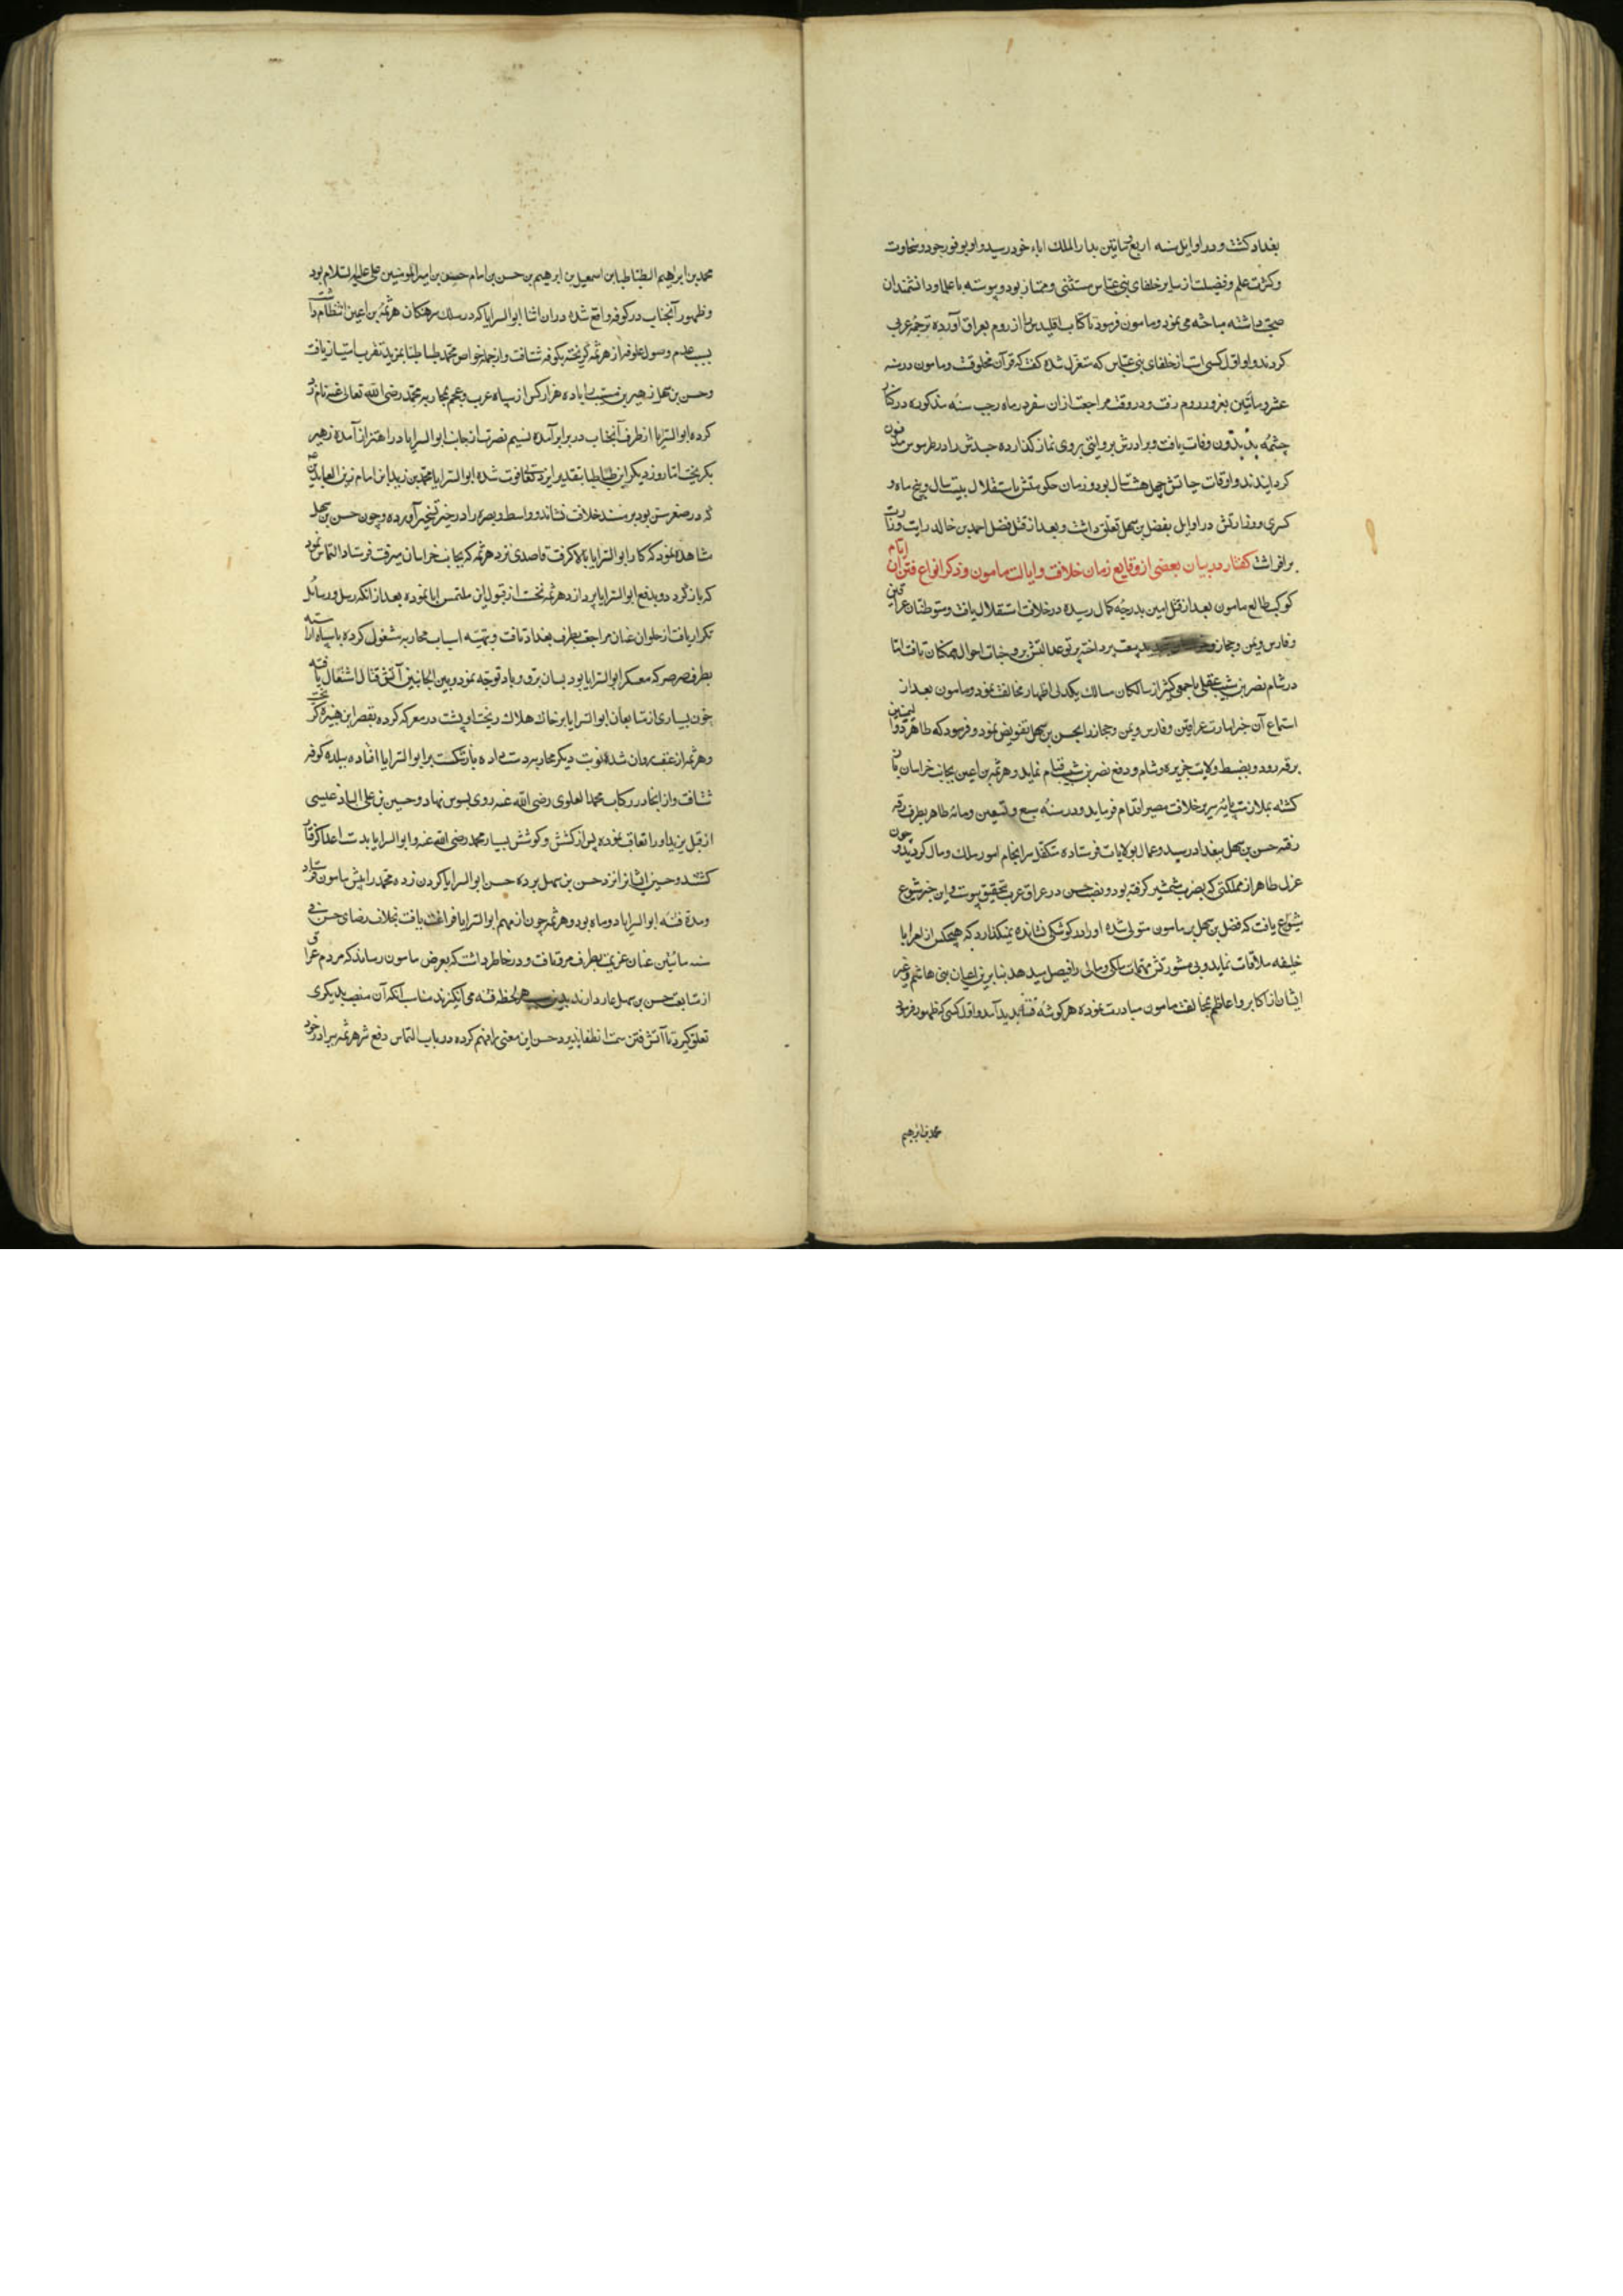 بغداد کشت و در اوایل سنه اربع و مائتین بدار الملک اباء خود رسید و او بوفور جود و سخاوت
و کثرت علم و فضیلت از سایر خلفای بنی عباس مستثنی و ممتاز بود و پیوسته با علما و دانشمندان
صحبت داشته مباحثه می نمود و مامون فرمود تا کتاب اقلیدس را از روم بعراق آورده ترجمۀ عربی
کردند و او اول کسی است از خلفای بنی عباس که متغزل شده کفت که قرآن مخلوقست و مامون در سنه
عشر و مائتین بغزو روم رفت و در وقت مراجعت از ان سفر در ماه رجب سنۀ مذکوره در کنار
چشمۀ بدبدون وفات یافت و برادرش بروایتی بر وی نماز کذارده جسدش را در طرسوس مدفون
کردانیدند و اوقات حیاتش چهل و هشت سال بود و زمان حکومتش باستقلال بیست سال و پنج ماه و
کسری و وزارتش در اوایل بفضل بن سهل تعلق داشت و بعد از قتل فضل احمد بن خالد رایت وزارت
برافراشت کفتار در بیان بعضی از وقایع زمان خلافت و ایالت مامون و ذکر انواع فتن ان ایام
کوکب طالع مامون بعد از قتل امین بدرجۀ کمال رسیده در خلافت استقلال یافت و متوطنان عراقین
و فارس و یمن و حجاز و بیعت پرداخته پرتو عدالتش بر وجنات احوال همکنان تافت اما
در شام نصر بن شیب عقیلی با جمعی کثیر از سالکان مسالک یکدلی اظهار مخالفت نمود و مامون بعد از
استماع آن خبر امارت عراقین و فارس و یمن و حجاز را بحسن بن سهل تفویض نمود و فرمود که طاهر ذو الیمینین
برقه رود و بضبط ولایت جزیره و شام و دفع نصر بن شیب قیام نماید و هرثمه بن اعین بجانب خراسان باز
کشته بملازمت پایۀ سریر خلافت مصیر اقدام فرماید و در سنۀ سبع و تسعین و مائه طاهر بطرف رقه
رفته حسن بن سهل ببغداد رسید و عمال بولایات فرستاده متکفل سرانجام امور ملک و مال کردید و چون
عزل طاهر از مملکتی که بضرب شمشیر کرفته بود و نصب حسن در عراق عرب بتحقیق پیوست و این خبر شیوع
شیوع یافت که فضل بن سهل بر مامون متولی شده او را در کوشکی نشانده نمیکذارد که هیچکس از امرا با
خلیفه ملاقات نماید و بی مشورتش مهمات ملکی و مالی را فیصل میدهد بنابرین اعیان بنی هاشم و غیر
ایشان از اکابر و اعاظم بمخالفت مامون مبادرت نموده هر کوشه فتنۀ پدید آمد و اول کسی که ظهور فرمود
محمد بن ابرهیم
محمد بن ابراهیم الطباطبا بن اسمعیل بن ابرهیم بن حسن بن امام حسن بن امیر المومنین علی علیهم السلام بود
و ظهور آنجناب در کوفه واقع شده در ان اثنا ابو السرایا که در سلک سرهنکان هرثمۀ بن اعین انتظام داشت
بسبب عدم وصول علوفه از هرثمه کریخته بکوفه شتافت و از جمله خواص محمد طباطبا بمزید تقرب امتیاز یافت
و حسن بن سهل زهیر بن مسیب را با ده هزار کس از سپاه عرب و عجم بمحاربه محمد رضی الله تعالی عنه نامزد
کرده ابو السرایا از طرف آنجناب در برابر آمده نسیم نصرت از جانب ابو السرایا در اهتزاز آمده زهیر
بکریخت اما روز دیکر ابن طباطبا بتقدیر ایزد تعالی فوت شده ابو السرایا محمد بن زید ابن امام زین العابدین
که در صغر سن بود بر مسند خلافت نشاند و واسط و بصره را در حیز تسخیر آورده و چون حسن بن سهل
مشاهده نمود که کار ابو السرایا بالا کرفت قاصدی نزد هرثمه که بجانب خراسان میرفت فرستاد التماس نمود
که بازکردد و بدفع ابو السرایا پردازد هرثمه نخست از قبول این ملتمس ابا نموده بعد از انکه رسل و رسائل
تکرار یافت از حلوان عنان مراجعت بطرف بغداد تافت و بتهیه اسباب محاربه مشغول کرده با سپاه آراسته
بطرف صرصر که معسکر ابو السرایا بود بسان برق و باد توجه نمود و بین الجانبین آتش قتال اشتعال یافته
خون بسیاری از متابعان ابو السرایا بر خاک هلاک ریخت او پشت در معرکه کرده بقصر ابن هبیره کریخت
و هرثمه از عقب روان شده نوبت دیکر محاربه دست داده باز شکست بر ابو السرایا افتاده ببلده کوفه
شتافت و از انجا در رکاب محمد العلوی رضی الله عنه روی بسوس نهاد و حسین بن علی الباذعیسی
از قبل یزید او را تعاقب نموده پس از کشش و کوشش بسیار محمد رضی الله عنه و ابو السرایا بدست اعدا کرفتار
کشتند و حسین ایشانرا نزد حسن بن سهل برده حسن ابو السرایا را کردن زده محمد را پیش مامون فرستاد
و مدة فتنه ابو السرایا ده ماه بود و هرثمه چون از مهم ابو السرایا فراغت یافت بخلاف رضای حسن فی
سنه مائتین عنان عزیمت بطرف مرو تافت و در خاطر داشت که بعرض مامون رساند که مردم عراق
از متابعت حسن بن سهل عار دارند بدین سبب هر لحظه فتنه می انکیزند مناسب آنکه آن منصب بدیکری
تعلق کیرد تا آتش فتن سمت انطفا پذیرد حسن این معنی را فهم کرده در باب التماس دفع شر هرثمه ببرادر خود